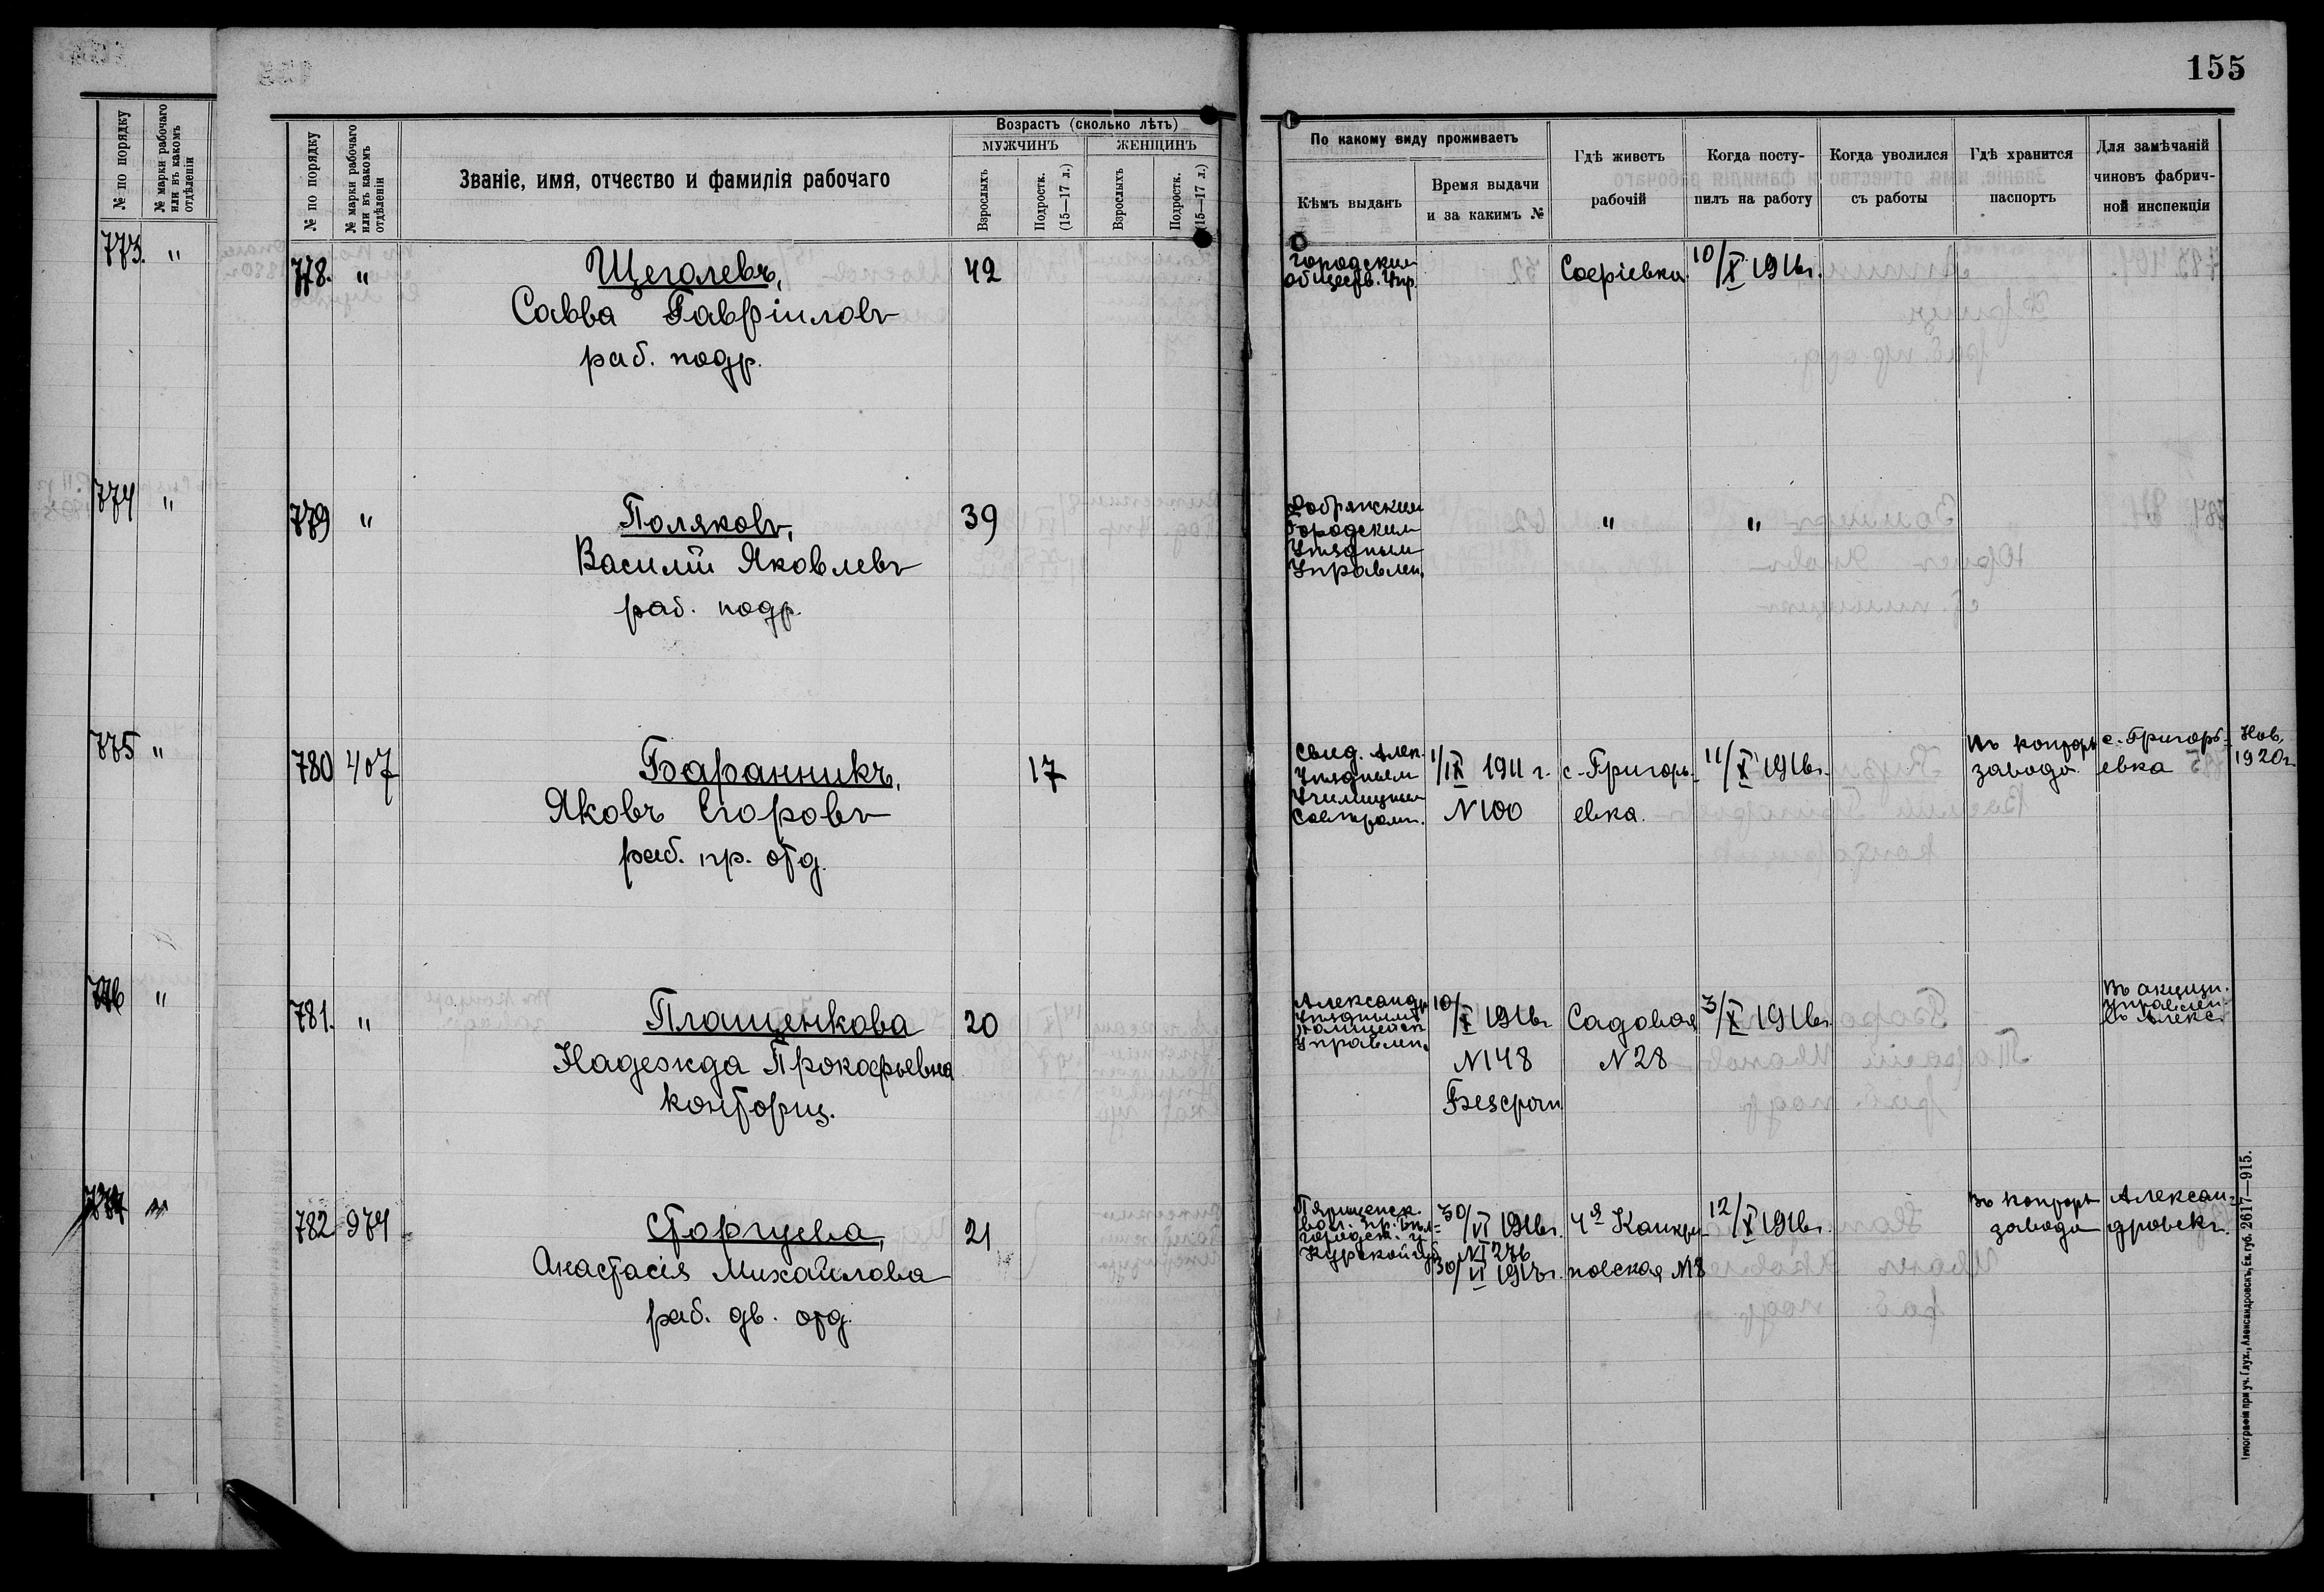 155
№ по порядку
№ марки рабочаго или въ какомъ отдѣленіи
773. "
774 "
775 "
776 "
№ по порядку
№ марки рабочаго или въ какомъ отдѣленіи
Званіе, имя, отчество и фамилія рабочаго
Возрастъ (сколько лѣтъ)
МУЖЧИНЪ
ЖЕНЩИНЪ
Взрослыхъ
Подростк. (15—17 л.)
Взрослыхъ
Подростк. (15—17 л.)
По какому виду проживаетъ
Кѣмъ выданъ
Время выдачи
и за какимъ №
Гдѣ живетъ
рабочій
Когда посту-
пилъ на работу
Когда уволился
съ работы
Гдѣ хранится
паспортъ
Для замѣчаній
чиновъ фабрич-
ной инспекціи
778. " Щеголевъ, 42
Савва Гавріиловъ
раб. подр.
Городским
обществ. Упр.
Софіевка
10/X 1916г.
779 " Поляковъ, 39
Василій Яковлевъ
раб. подр.
Городским
Управлен.
" "
780 407 Баранникъ, 17
Яковъ Егоровъ
раб. пр. отд.
Свид. Алек.
Уѣздным
Училищным
1/IX 1911 г.
N 100
с. Григорь-
евка.
11/X 1916г.
Въ конторѣ
завода
с. Григорь-
евка
Нов.
1920г.
781. " Плащенкова 20
Надежда Прокофьевна
конторщ.
Александр
Уѣздным
Полицейск
Управлен.
10/X 1916г
N 148
Безсрочн
Садовая
N 28
3/X 1916г.
Въ акцизн.
Управлен.
782 974 Сторчуева, 21
Анастасія Михайлова
раб. дв. отд.
Курской губ
30/VI 1916г.
N 276
30/VI 1917г.
12/X 1916г.
Въ конторѣ
завода
Алексан-
дровскъ.
Типографія при уч. Глух., Александровскъ, Ек. губ. 2617—915.